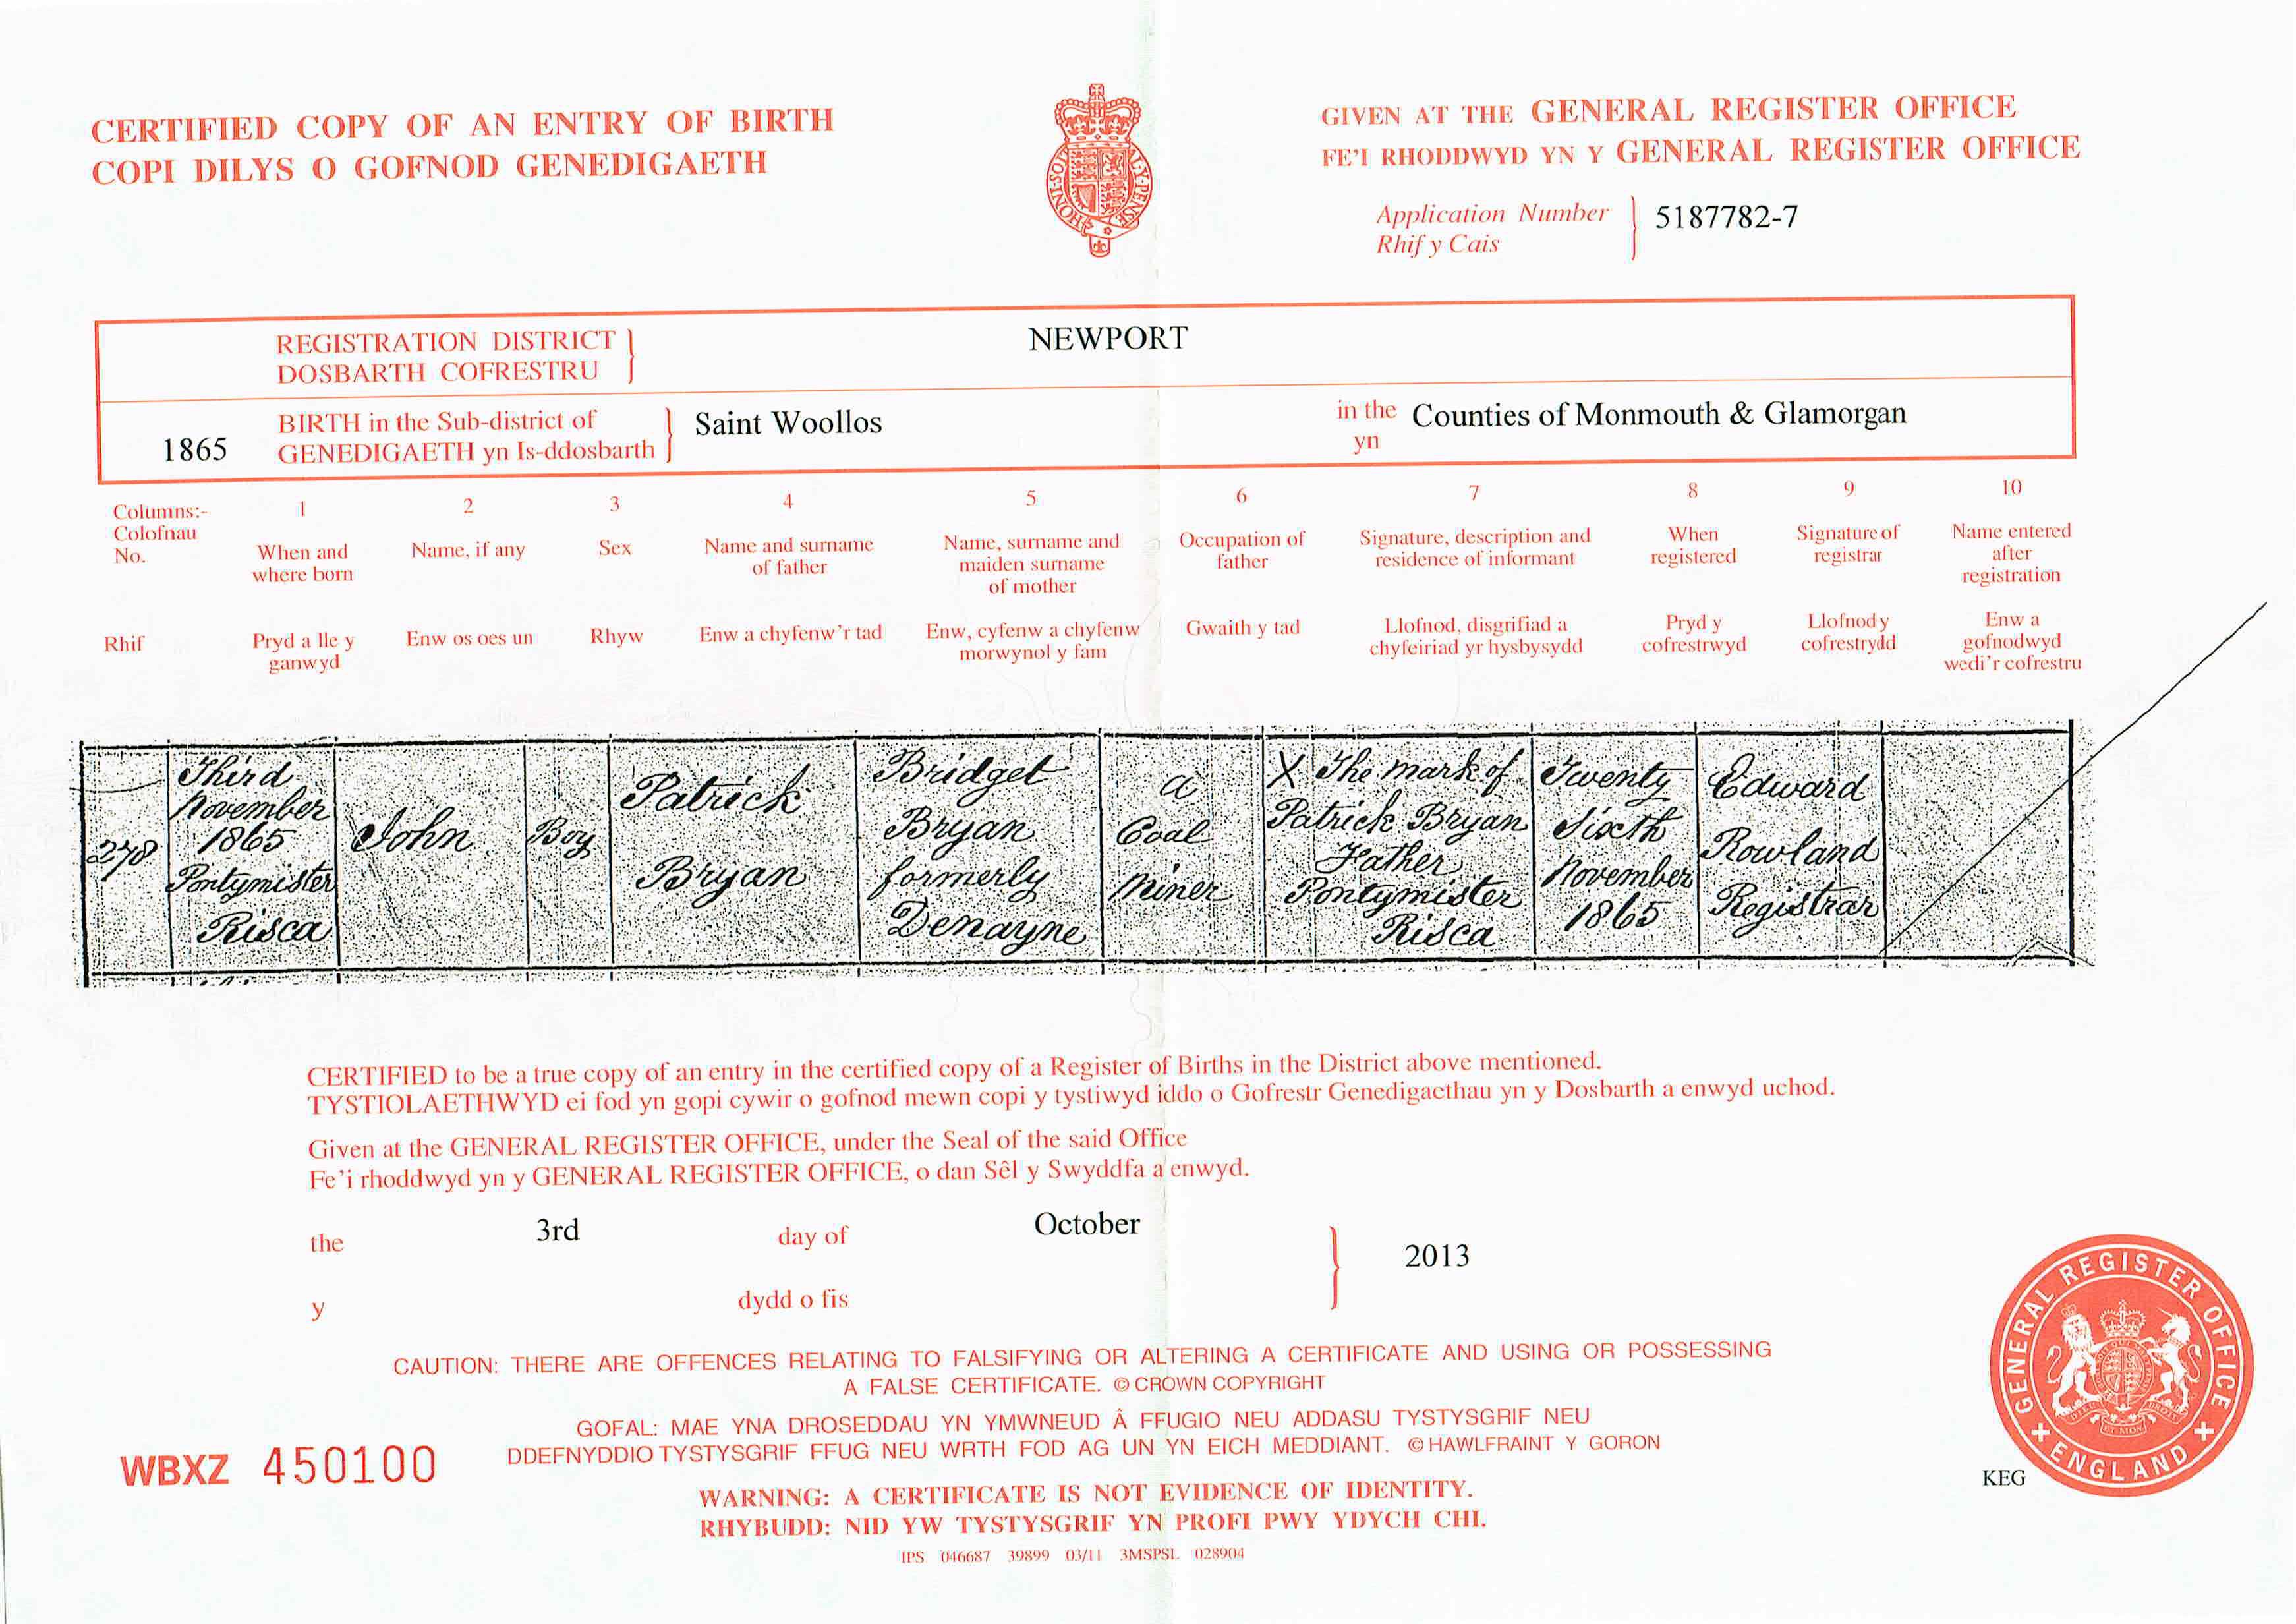 CERTIFIED COPY OF AN ENTRY OF BIRTH
COPI DILYS O GOFNOD GENEDIGAETH
HONI·SOI
AL·Y·PENSE
GIVEN AT THE GENERAL REGISTER OFFICE
FE'I RHODDWYD YN Y GENERAL REGISTER OFFICE
Application Number
Rhif y Cais
5187782-7
REGISTRATION DISTRICT
DOSBARTH COFRESTRU
NEWPORT
1865
BIRTH in the Sub-district of
GENEDIGAETH yn Is-ddosbarth
Saint Woollos
in the
yn
Counties of Monmouth & Glamorgan
Columns:-
Colofnau
No.
Rhif
1
When and
where born
Pryd a lle y
ganwyd
2
Name, if any
Enw os oes un
3
Sex
Rhyw
4
Name and surname
of father
Enw a chyfenw'r tad
5
Name, surname and
maiden surname
of mother
Enw, cyfenw a chyfenw
morwynol y fam
6
Occupation of
father
Gwaith y tad
7
Signature, description and
residence of informant
Llofnod, disgrifiad a
chyfeiriad yr hysbysydd
8
When
registered
Pryd y
cofrestrwyd
9
Signature of
registrar
Llofnod y
cofrestrydd
10
Name entered
after
registration
Enw a
gofnodwyd
wedi'r cofrestru
278
Third
November
1865
Pontymister
Risca
John
Boy
Patrick
Bryan
Bridget
Bryan
formerly
Denayne
a
Coal
Miner
X The mark of
Patrick Bryan
Father
Pontymister
Risca
Twenty
Sixth
November
1865
Edward
Rowland
Registrar
CERTIFIED to be a true copy of an entry in the certified copy of a Register of Births in the District above mentioned.
TYSTIOLAETHWYD ei fod yn gopi cywir o gofnod mewn copi y tystiwyd iddo o Gofrestr Genedigaethau yn y Dosbarth a enwyd uchod.
Given at the GENERAL REGISTER OFFICE, under the Seal of the said Office
Fe'i rhoddwyd yn y GENERAL REGISTER OFFICE, o dan Sêl y Swyddfa a enwyd.
the 3rd day of October 2013
y dydd o fis
CAUTION: THERE ARE OFFENCES RELATING TO FALSIFYING OR ALTERING A CERTIFICATE AND USING OR POSSESSING
A FALSE CERTIFICATE. © CROWN COPYRIGHT
GOFAL: MAE YNA DROSEDDAU YN YMWNEUD Â FFUGIO NEU ADDASU TYSTYSGRIF NEU
DDEFNYDDIO TYSTYSGRIF FFUG NEU WRTH FOD AG UN YN EICH MEDDIANT. © HAWLFRAINT Y GORON
WBXZ 450100
WARNING: A CERTIFICATE IS NOT EVIDENCE OF IDENTITY.
RHYBUDD: NID YW TYSTYSGRIF YN PROFI PWY YDYCH CHI.
IPS 046687 39899 03/11 3MSPSL 028904
KEG
GENERAL REGISTER OFFICE
ENGLAND